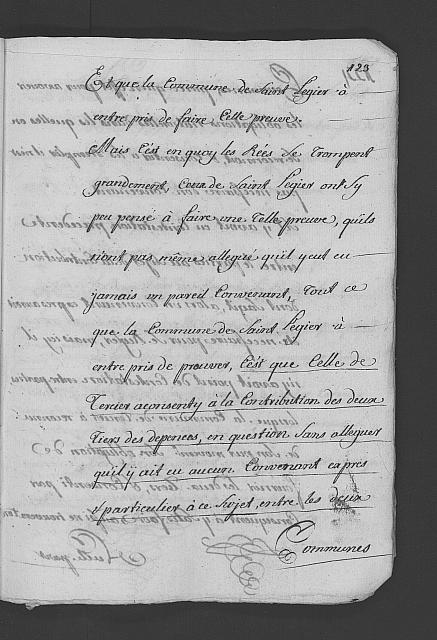 123
Et que la Commune de Saint Legier à
entre pris de faire Celle preuve.
Mais C'est en quoy les Rées Se Trompent
grandement, Ceux de Saint Legier ont Sy
peu pensé à faire une Telle preuve, quils
niont pas même allegué quil y eut eu
jamais un pareil Convenant, Tout ce
que la Commune de Saint Legier à
entre pris de prouver, C'est que Celle de
Tercier aconsenty à la Contribution des deux
Tiers des depences, en question Sans alleguer
quil y ait eu aucun Convenant expres
& particulier à ce Sujet, entre les deux
Communes